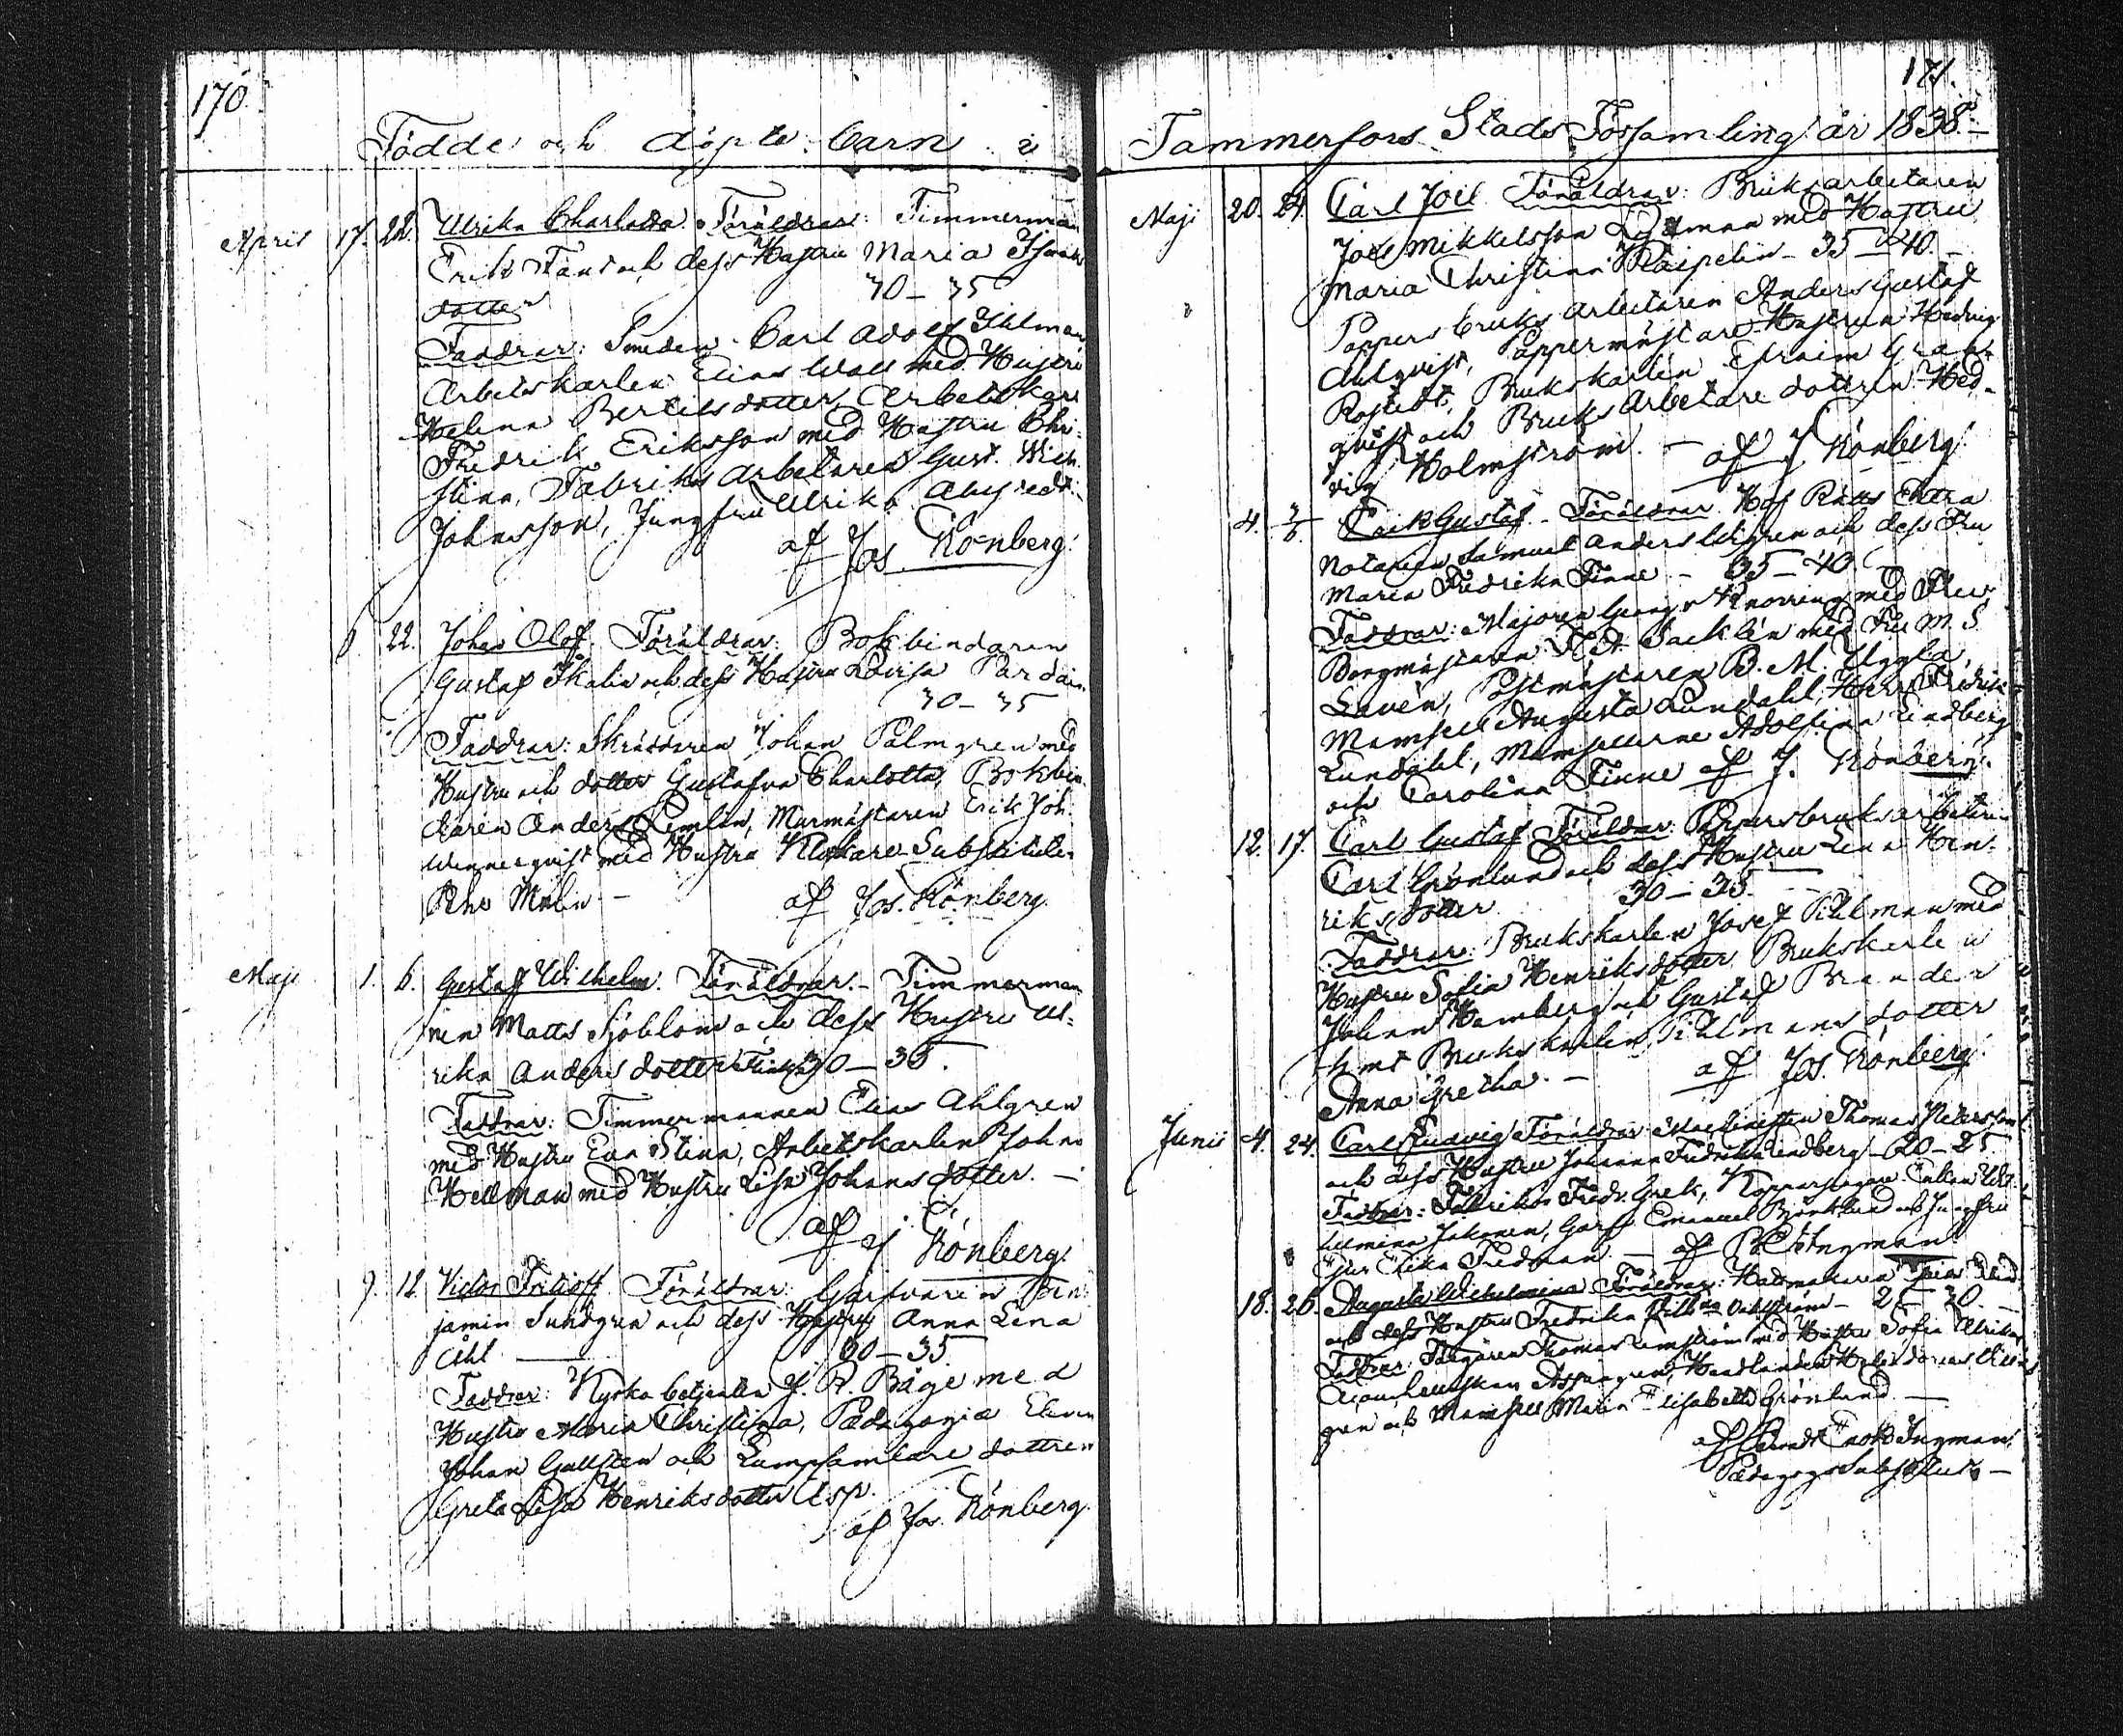 170.
Födde och döpte barn i
April 17. 22. Ulrika Charlotta. Föräldrar: Timmerman
Erik Fans och dess Hustru Maria Isaaks
dotter 30 – 35
Faddrar: Smeden Carl Adolf Ihlman
Arbetskarlen Elias Wall med Hustru
Helena Bertilsdotter, Arbetskarl
Fredrik Eriksson med Hustru Chri-
stina, Fabriks arbetaren Gust. Wilh.
Johnsson, Jungfru Ulrika
af Jos. Rönberg.
6 22. Johan Olof. Föräldrar: Bokbindaren
Gustaf Skalin och dess Hustru Lovisa
30 – 35
Faddrar: Skräddaren Johan Palmgren med
Hustru och dotter Gustafva Charlotta, Bokbin
daren Anders Lemlin, Murmästaren Erik Joh.
Wennerqvist med Hustru Klockare Substituten
Malin – af Jos. Rönberg.
Maji 1. 6. Gustaf Wilhelm. Föräldrar. – Timmerman
nen Matts Sjöblom och dess Hustru Ul-
rika Anders dotter 30 – 35.
Faddrar: Timmermannen Elias Ahlgren
med Hustru Eva Stina, Arbetskarlen Johan
Hellman med Hustru Lisa Johans dotter. –
af J. Rönberg.
9. 12. Victor Frithioff. Föräldrar: Garfvaren Ben-
jamin Sundgren och dess Hustru Anna Lena
Åhl 30 – 35
Faddrar: Kyrko betjenten J. R. Båge med
Hustru Maria Christina, Pædagogiæ Eleven
Johan Gullsten och Lumpsamlare dottren
Greta Lisa Henriksdotter Asp.
af Jos. Rönberg.
171.
Tammerfors Stads Församling år 1838. –
Maji 20. 24. Carl Joel Föräldrar: Bruksarbetaren
Joel Mikkelsson med Hustru
Maria Christina – 35 – 40. –
Pappers bruks arbetaren Anders Gustaf
Ahlqvist, Pappermästare Hustrun Hedvig
Rostedt, Brukskarlen Efraim Gran-
qvist och Bruks arbetare dottren Hed-
vig Holmström. – af J Rönberg.
4. 3/6 Erik Gustaf. – Föräldrar. Hof Rätts Extra
Notarien Samuel Anders och dess Fru
Maria Fredrika Finne – 35 – 40 –
Faddrar: Majoren Georg v Knorring med Fru,
Borgmästaren Sacklén med Fru M. S.
Lavén, Postmästaren B. M. Uggla,
Mamsell Augusta Lundahl, Herr Fredrik
Lundahl, Mamsellerne Adolfina Lindberg
och Carolina Finne af J. Rönberg.
12. 17. Carl Gustaf Föräldrar: Pappersbruks arbetaren
Carl Grönlund och dess Hustru Lena Hen-
riks dotter 30 – 35.
Faddrar: Brukskarlen Josef Pihlman med
Hustru Sofia Henriksdotter, Brukskarlen
Johan Hamberg och Gustaf Brander
samt Brukskarlen Pihlmans dotter
Anna Gretha. – af Jos. Rönberg.
Junii 4. 24. Carl Ludvig Föräldrar Machinisten Thomas Petersson
och dess Hustru Johanna Fredrika Lindberg – 20 – 25
Faddrar: Fabrikör Fredr. Grek, Kopparslagare Enkan Wil-
helmina Jakman, Garfv. Emanuel Björklund och Jungfru
Erika Fredman – af Ingman
18. 26. Augusta Wilhelmina Föräldrar: Hattmakaren
och dess Hustru Fredrika Dahlström – 25 – 30. –
Faddrar: Färgaren Thomas Lemström med Hustru Sofia Ulrika
Aspengren, Handlanden
gren och Mamsell Maria Elisabeth Grönlund –
af Ingman
Pædagogie Substitut –